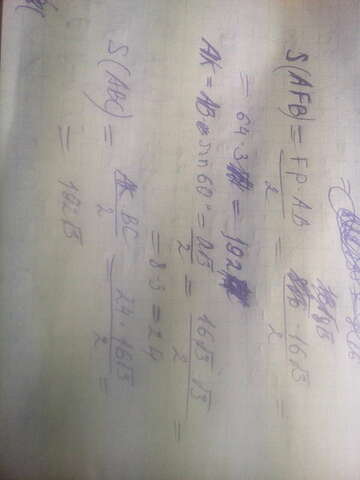 S(AFB) = FP·AB/2 = ·16√3/2 =
= 64·3 = 192
AK = AB sin60° = √3/2 = 16√3·√3/2 =
= 8·3 = 24
S(ABC) = AK·BC/2 = 24·16√3/2 =
= 192√3